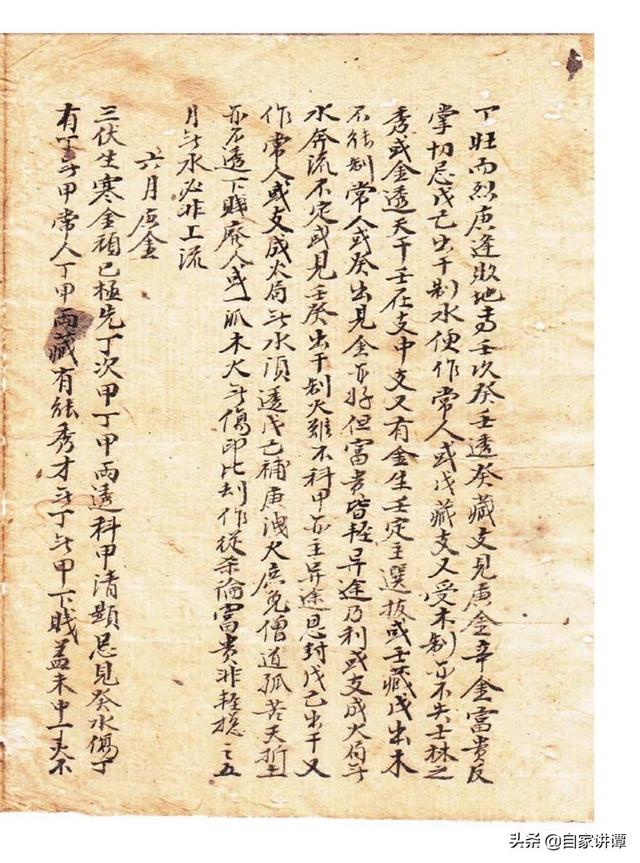 丁旺而烈庚逢敗地专壬次癸壬透癸藏支見庚金辛金富貴反
掌切忌戊己出干制水便作常人或戊藏支又受木制亦不失士林之
秀或金透天干壬在支中支又有金生壬定主選拔或壬藏戊出木
不能制常人或癸出見金亦好但富貴皆輕异途乃利或支成火局无
水奔流不定或見壬癸出干制火雖不科甲亦主异途恩封戊己出干又
作常人或支成火局无水須透戊己補庚洩火庶免僧道孤苦夭折土
亦不透下賤廢人或一派木火无傷即比刦作從杀論富貴非輕總之五
月无水必非上流
六月庚金
三伏生寒金頑已極先丁次甲丁甲兩透科甲清顯忌見癸水傷丁
有丁无甲常人丁甲兩藏有能秀才无丁无甲下賤盖未中一丁火不
头条 @自家讲谭